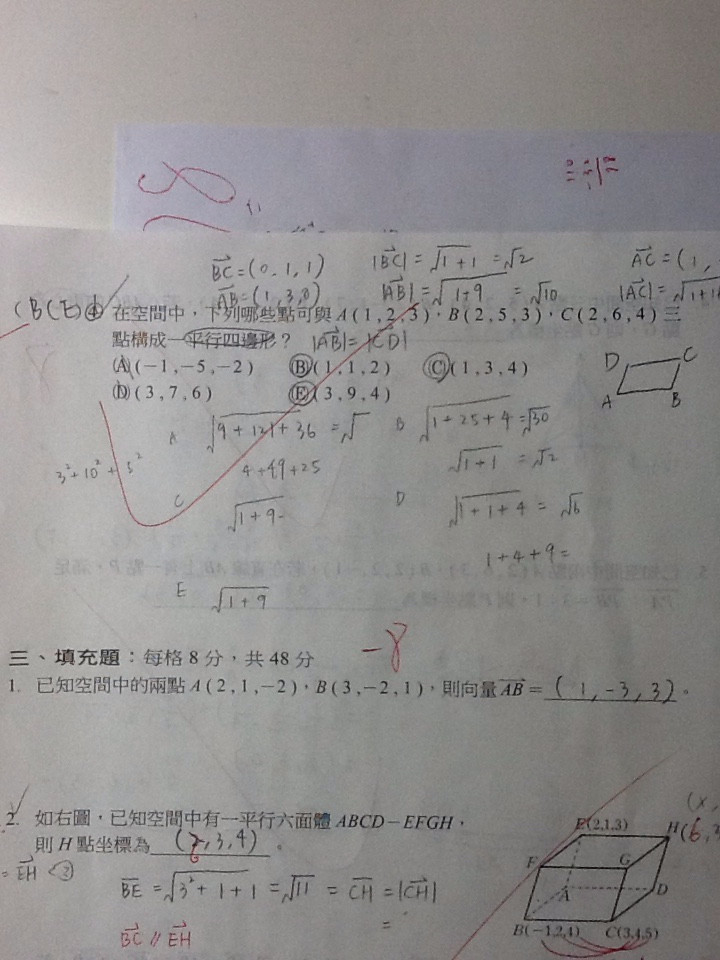 BC=(0,1,1) |BC|=√1+1=√2 AC=(1,
AB=(1,3,0) |AB|=√1+9=√10 |AC|=√1+1
(BCE) 4 在空間中,下列哪些點可與 A(1,2,3)、B(2,5,3)、C(2,6,4) 三
點構成一平行四邊形? |AB|=|CD|
(A)(-1,-5,-2) (B)(1,1,2) (C)(1,3,4)
(D)(3,7,6) (E)(3,9,4)
D C
A B
A √9+121+36=√ B √1+25+4=√30
3²+10²+5² 4+49+25 √1+1=√2
C √1+9 D √1+1+4=√6
1+4+9=
E √1+9
-8
三、填充題:每格 8 分,共 48 分
1. 已知空間中的兩點 A(2,1,-2)、B(3,-2,1),則向量 AB=(1,-3,3)。
2. 如右圖,已知空間中有一平行六面體 ABCD-EFGH,
則 H 點坐標為(2,3,4)。
6
=EH
BE=√3²+1+1=√11=CH=|CH|
=
BC // EH
(x,
E(2,1,3) H(6,3
F G
A D
B(-1,2,4) C(3,4,5)